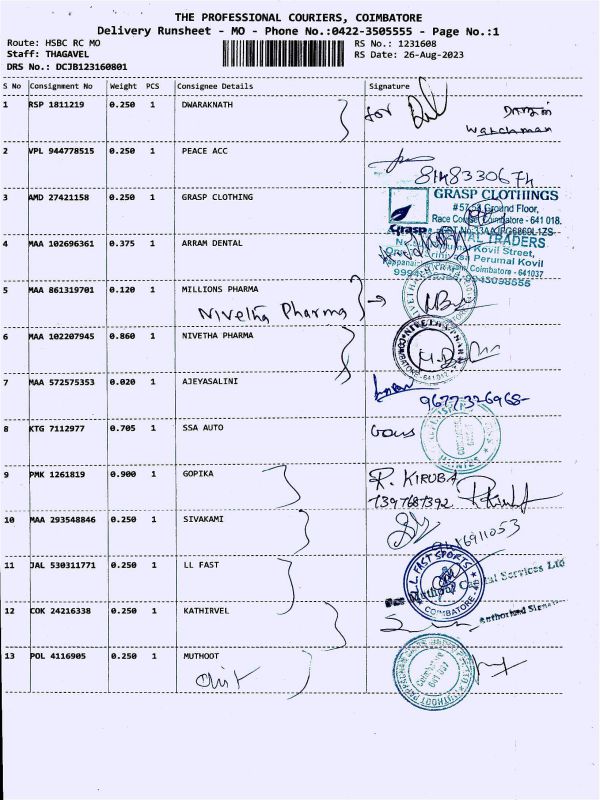 THE PROFESSIONAL COURIERS, COIMBATORE
Delivery Runsheet - MO - Phone No.:0422-3505555 - Page No.:1
Route: HSBC RC MO RS No.: 1231608
Staff: THAGAVEL RS Date: 26-Aug-2023
DRS No.: DCJB123160801
S No Consignment No Weight PCS Consignee Details Signature
1 RSP 1811219 0.250 1 DWARAKNATH for
Watchman
2 VPL 944778515 0.250 1 PEACE ACC
8148330674
3 AMD 27421158 0.250 1 GRASP CLOTHING GRASP CLOTHIINGS
Ground Floor,
Race Course, Coimbatore - 641 018.
Grasp
4 MAA 102696361 0.375 1 ARRAM DENTAL TRADERS
Kovil Street,
Perumal Kovil
Coimbatore - 641037
5 MAA 861319701 0.120 1 MILLIONS PHARMA
Nivetha Pharma
6 MAA 102207945 0.860 1 NIVETHA PHARMA
7 MAA 572575353 0.020 1 AJEYASALINI
9677326968
8 KTG 7112977 0.705 1 SSA AUTO
9 PMK 1261819 0.900 1 GOPIKA R. KIRUBA
7397687392
10 MAA 293548846 0.250 1 SIVAKAMI
11 JAL 530311771 0.250 1 LL FAST L.L. FAST SPORTS
COIMBATORE
For Muthoot Capital Services Ltd
12 COK 24216338 0.250 1 KATHIRVEL
13 POL 4116905 0.250 1 MUTHOOT
Chit